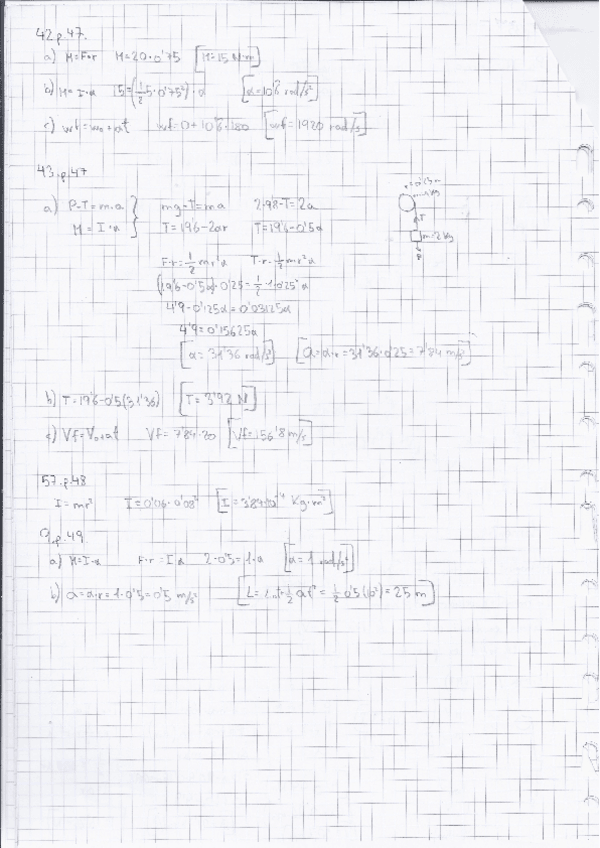 42 p.47.
a) M=F·r M=20·0'75 [M=15 N·m]
b) M=I·α 15=(1/2 5·0'75²)·α [α=10'6 rad/s²]
c) wf=w₀+αt wf=0+10'6·180 [wf=1920 rad/s]
43.p.47
a) P-T=m·a } mg-T=ma 2·9'8-T=2a
M=I·α T=19'6-2αr T=19'6-0'5α
m=2 kg
F·r=1/2 m·r²α T·r=1/2 m·r²α
(19'6-0'5α)·0'25=1/2·1·0'25²α
4'9-0'125α=0'03125α
4'9=0'15625α
[α=31'36 rad/s²] [a=α·r=31'36·0'25=7'84 m/s²]
b) T=19'6-0'5(31'36) [T=3'92 N]
c) Vf=V₀+at Vf=7'84·20 [Vf=156'8 m/s]
57.p.48
I=mr² I=0'06·0'08² [I=3'84·10⁻⁴ Kg·m²]
p.49.
a) M=I·α F·r=I·α 2·0'5=1·α [α=1 rad/s²]
b) a=α·r=1·0'5=0'5 m/s² 1/2 at²=1/2 0'5(10²)=25 m]